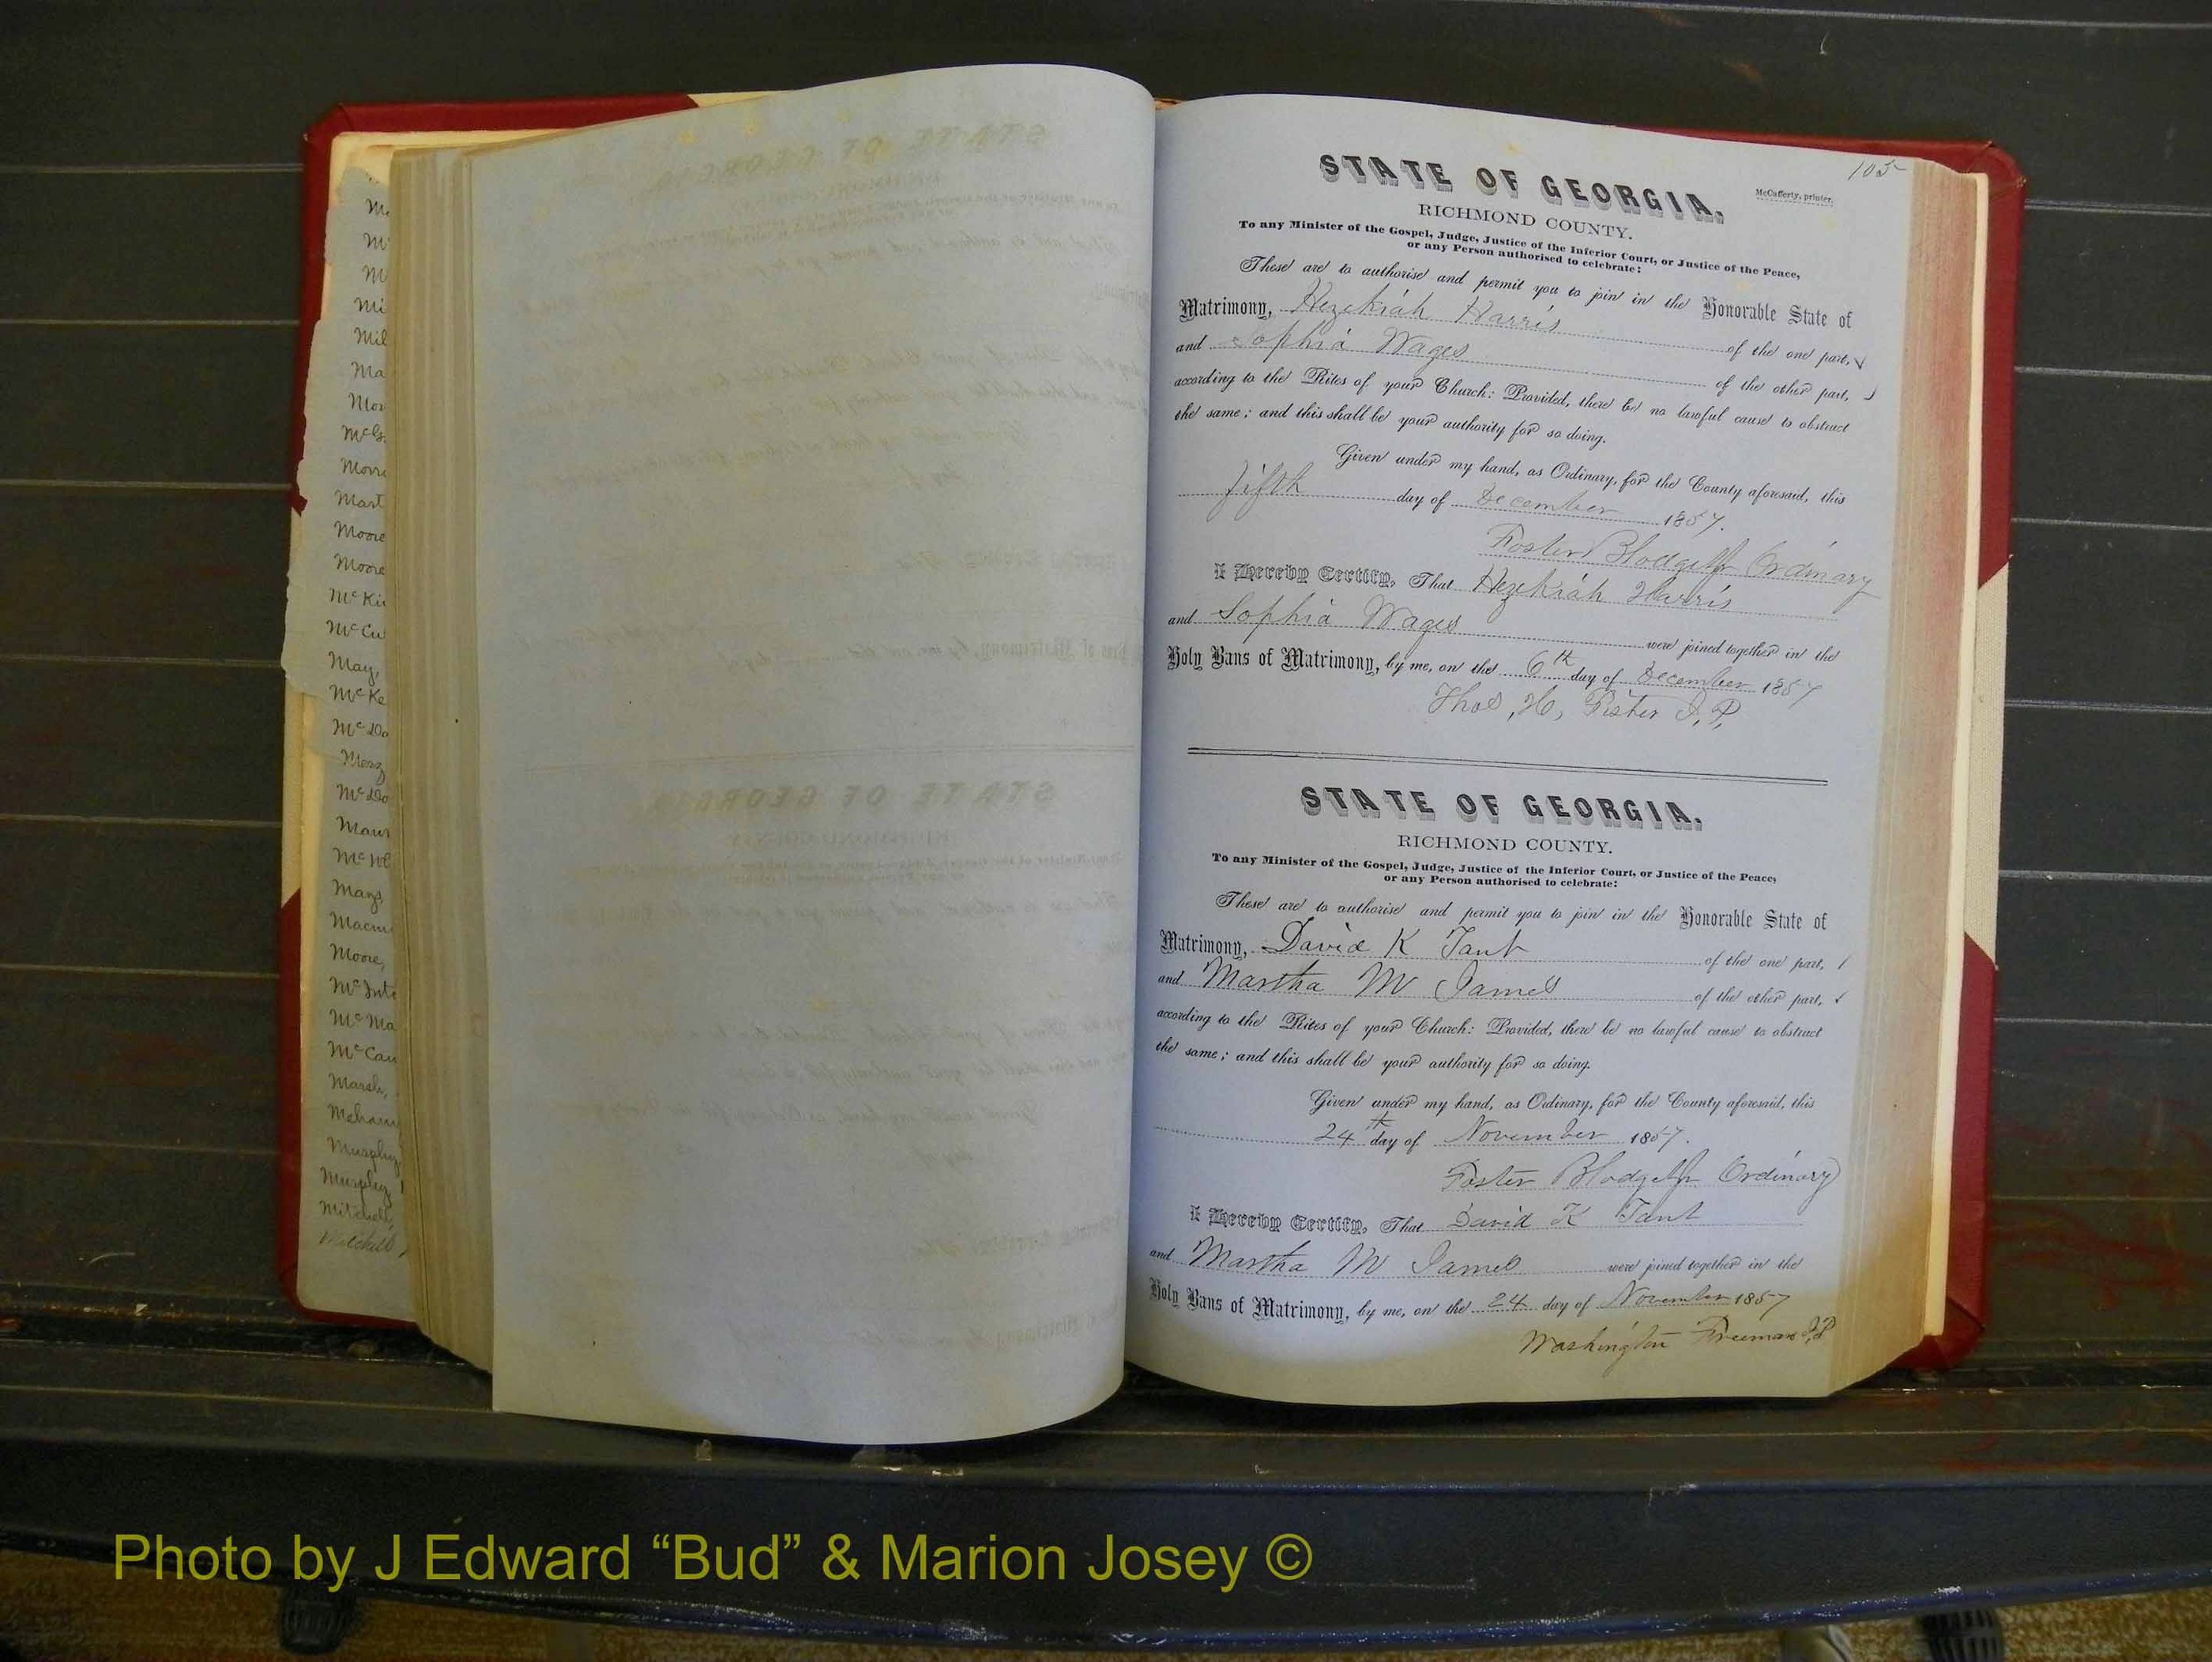 Mi
Mil
Ma
Moore
Moore
May,
Moore,
Marsh,
Murphy
Murphy
Mitchell,
Mitchell
105
STATE OF GEORGIA.
McCafferty, printer.
RICHMOND COUNTY.
To any Minister of the Gospel, Judge, Justice of the Inferior Court, or Justice of the Peace,
or any Person authorised to celebrate:
These are to authorise and permit you to join in the Honorable State of
Matrimony, Hezekiah Harris of the one part,
and Sophia Wages of the other part,
according to the Rites of your Church: Provided, there be no lawful cause to obstruct
the same; and this shall be your authority for so doing.
Given under my hand, as Ordinary, for the County aforesaid, this
fifth day of December 1857.
Foster Blodget Jr Ordinary
I Hereby Certify, That Hezekiah Harris
and Sophia Wages were joined together in the
Holy Bans of Matrimony, by me, on the 6th day of December 1857
Thos, H, J, P,
STATE OF GEORGIA.
RICHMOND COUNTY.
To any Minister of the Gospel, Judge, Justice of the Inferior Court, or Justice of the Peace,
or any Person authorised to celebrate:
These are to authorise and permit you to join in the Honorable State of
Matrimony, David K Tant of the one part,
and Martha M James of the other part,
according to the Rites of your Church: Provided, there be no lawful cause to obstruct
the same; and this shall be your authority for so doing.
Given under my hand, as Ordinary, for the County aforesaid, this
24th day of November 1857.
Foster Blodget Jr Ordinary
I Hereby Certify, That David K Tant
and Martha M James were joined together in the
Holy Bans of Matrimony, by me, on the 24 day of November 1857
Washington Freeman J,P
Photo by J Edward “Bud” & Marion Josey ©